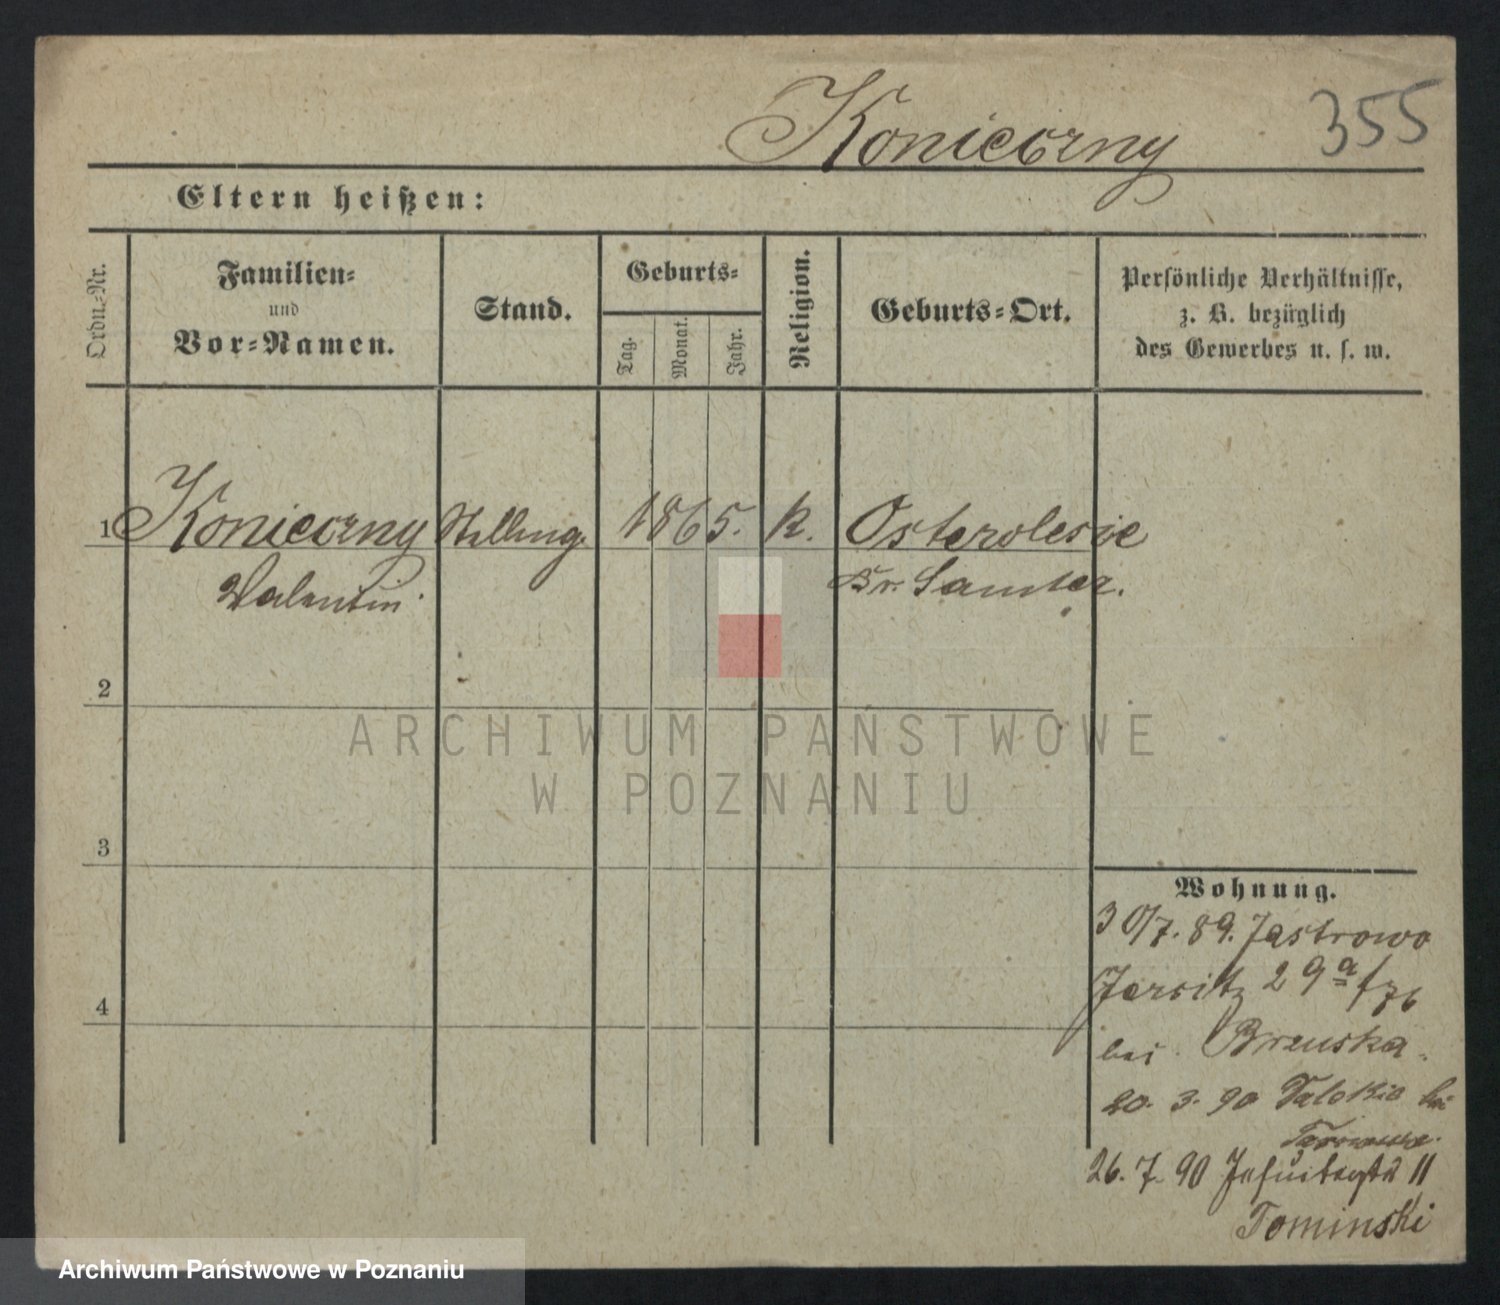 Koniecrny 355
Eltern heißen:
Ordn.-Nr.
Familien-
und
Vor-Namen.
Stand.
Geburts-
Tag.
Monat.
Jahr.
Religion.
Geburts-Ort.
Persönliche Verhältnisse,
z. B. bezüglich
des Gewerbes u. s. w.
1 Koniecrny Stellmg. 1865. k. Osterolesie
Valentin Kr. Samter.
2
3
4
Wohnung.
30/7. 89. Jastrowo
Jersitz 29a
bei Brzuska.
20. 3. 90 bei
26. 7. 90 11
Tominski
ARCHIWUM PAŃSTWOWE
W POZNANIU
Archiwum Państwowe w Poznaniu